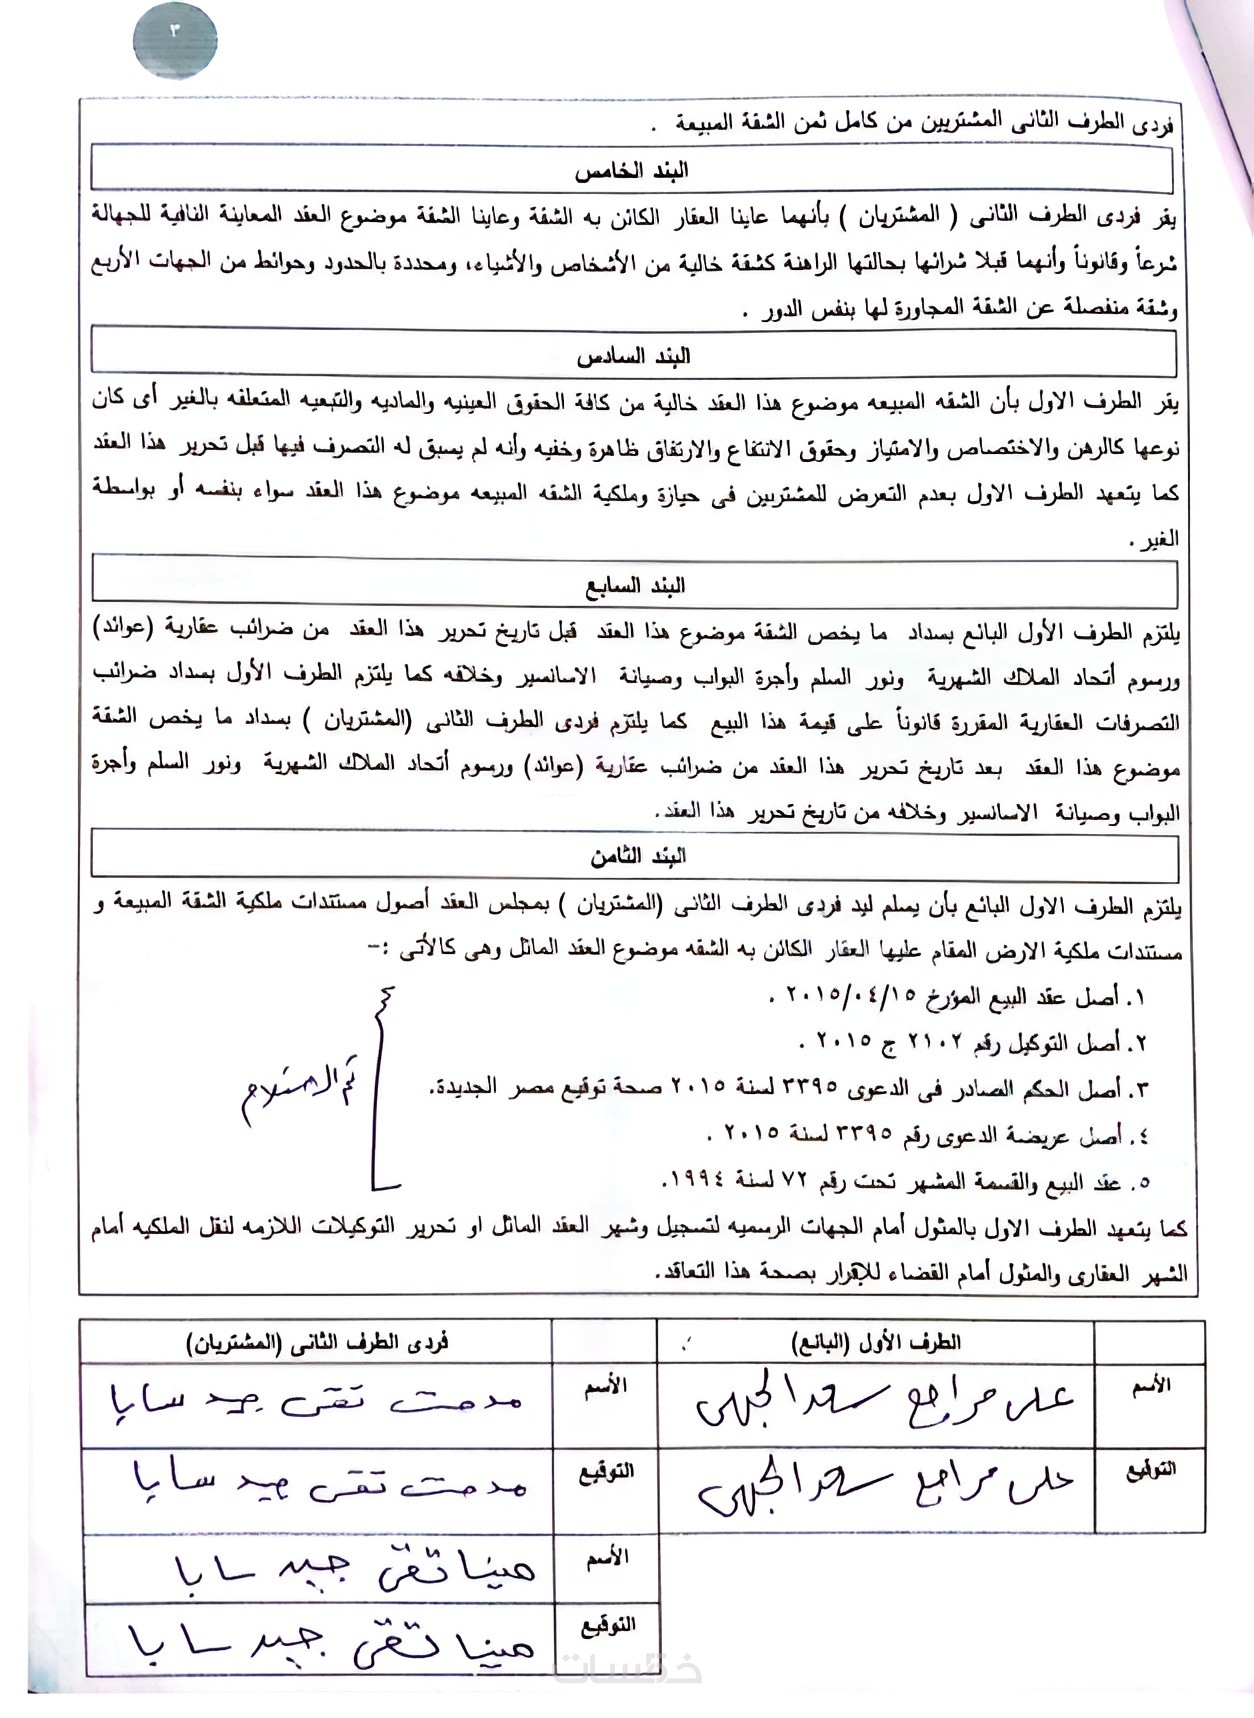 ٣
فردى الطرف الثانى المشتريين من كامل ثمن الشقة المبيعة .
البند الخامس
يقر فردى الطرف الثانى ( المشتريان ) بأنهما عاينا العقار الكائن به الشقة وعاينا الشقة موضوع العقد المعاينة النافية للجهالة
شرعاً وقانوناً وأنهما قبلا شرائها بحالتها الراهنة كشقة خالية من الأشخاص والأشياء، ومحددة بالحدود وحوائط من الجهات الأربع
وشقة منفصلة عن الشقة المجاورة لها بنفس الدور .
البند السادس
يقر الطرف الاول بأن الشقه المبيعه موضوع هذا العقد خالية من كافة الحقوق العينيه والماديه والتبعيه المتعلقه بالغير أى كان
نوعها كالرهن والاختصاص والامتياز وحقوق الانتفاع والارتفاق ظاهرة وخفيه وأنه لم يسبق له التصرف فيها قبل تحرير هذا العقد
كما يتعهد الطرف الاول بعدم التعرض للمشتريين فى حيازة وملكية الشقه المبيعه موضوع هذا العقد سواء بنفسه أو بواسطة
الغير .
البند السابع
يلتزم الطرف الأول البائع بسداد ما يخص الشقة موضوع هذا العقد قبل تاريخ تحرير هذا العقد من ضرائب عقارية (عوائد)
ورسوم أتحاد الملاك الشهرية ونور السلم وأجرة البواب وصيانة الاسانسير وخلافه كما يلتزم الطرف الأول بسداد ضرائب
التصرفات العقارية المقررة قانوناً على قيمة هذا البيع كما يلتزم فردى الطرف الثانى (المشتريان ) بسداد ما يخص الشقة
موضوع هذا العقد بعد تاريخ تحرير هذا العقد من ضرائب عقارية (عوائد) ورسوم أتحاد الملاك الشهرية ونور السلم وأجرة
البواب وصيانة الاسانسير وخلافه من تاريخ تحرير هذا العقد.
البند الثامن
يلتزم الطرف الاول البائع بأن يسلم ليد فردى الطرف الثانى (المشتريان ) بمجلس العقد أصول مستندات ملكية الشقة المبيعة و
مستندات ملكية الارض المقام عليها العقار الكائن به الشقه موضوع العقد الماثل وهى كالأتى :-
١. أصل عقد البيع المؤرخ ٢٠١٥/٠٤/١٥ .
٢. أصل التوكيل رقم ٢١٠٢ ج ٢٠١٥ .
٣. أصل الحكم الصادر فى الدعوى ٣٣٩٥ لسنة ٢٠١٥ صحة توقيع مصر الجديدة.
تم الاستلام
٤. أصل عريضة الدعوى رقم ٣٣٩٥ لسنة ٢٠١٥ .
٥. عقد البيع والقسمة المشهر تحت رقم ٧٢ لسنة ١٩٩٤.
كما يتعهد الطرف الاول بالمثول أمام الجهات الرسميه لتسجيل وشهر العقد الماثل او تحرير التوكيلات اللازمه لنقل الملكيه أمام
الشهر العقارى والمثول أمام القضاء للإقرار بصحة هذا التعاقد.
الطرف الأول (البائع) فردى الطرف الثانى (المشتريان)
الأسم على مراجع سعد الجهى الأسم مدحت تقى جيد سابا
التوقيع على مراجع سعد الجهى التوقيع مدحت تقى جيد سابا
الأسم مينا تقى جيد سابا
التوقيع مينا تقى جيد سابا
خمسات